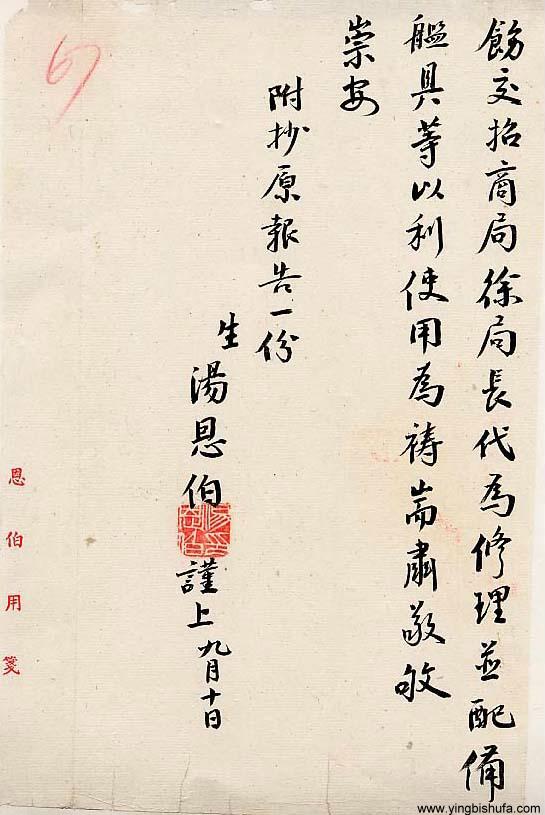 飭交招商局徐局長代為修理並配備
艦具等以利使用為禱耑肅敬敂
崇安
附抄原報告一份
生湯恩伯謹上九月十日
恩伯用箋
www.yingbishufa.com